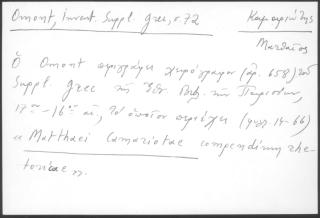 Omont, Invent. Suppl. grec, σ. 72
Καμαριώτης
Ματθαῖος
Ὁ Omont περιγράφει χειρόγραφον (ἀρ. 658) τοῦ
Suppl. grec τῆς Ἐθν. Βιβ. τῶν Παρισίων,
-16ου αἰ., τὸ ὁποῖον περιέχει (φυλ. 14-66)
« Matthaei Camariotae compendium rhe-
toricae ».